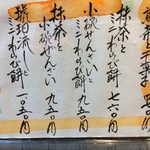 抹茶と
ミニわらび餅 七六〇
小碗ぜんざいと
ミニわらび餅 九五〇
抹茶と
小碗ぜんざい 九五〇
琥珀流しと
ミニわらび餅 一〇五〇